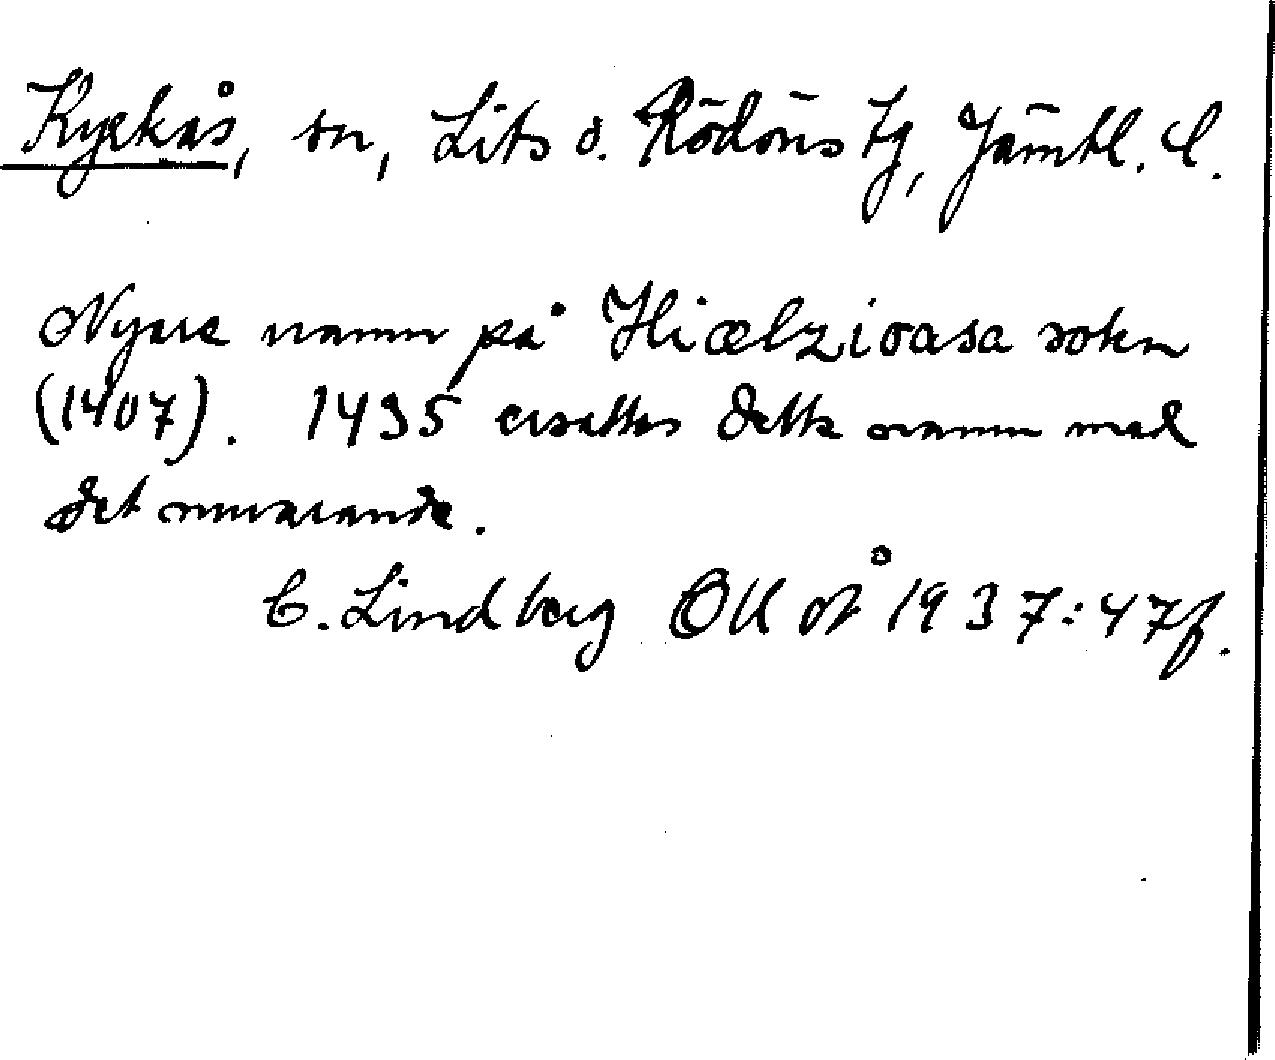 Kyrkås, sn, Lits o. Rödöns tg, Jämtl. l.
Nyare namn på Hiælzioasa sokn
(1407). 1435 ersattes detta namn med
det nuvarande.
C. Lindberg OUoÅ 1937:47f.